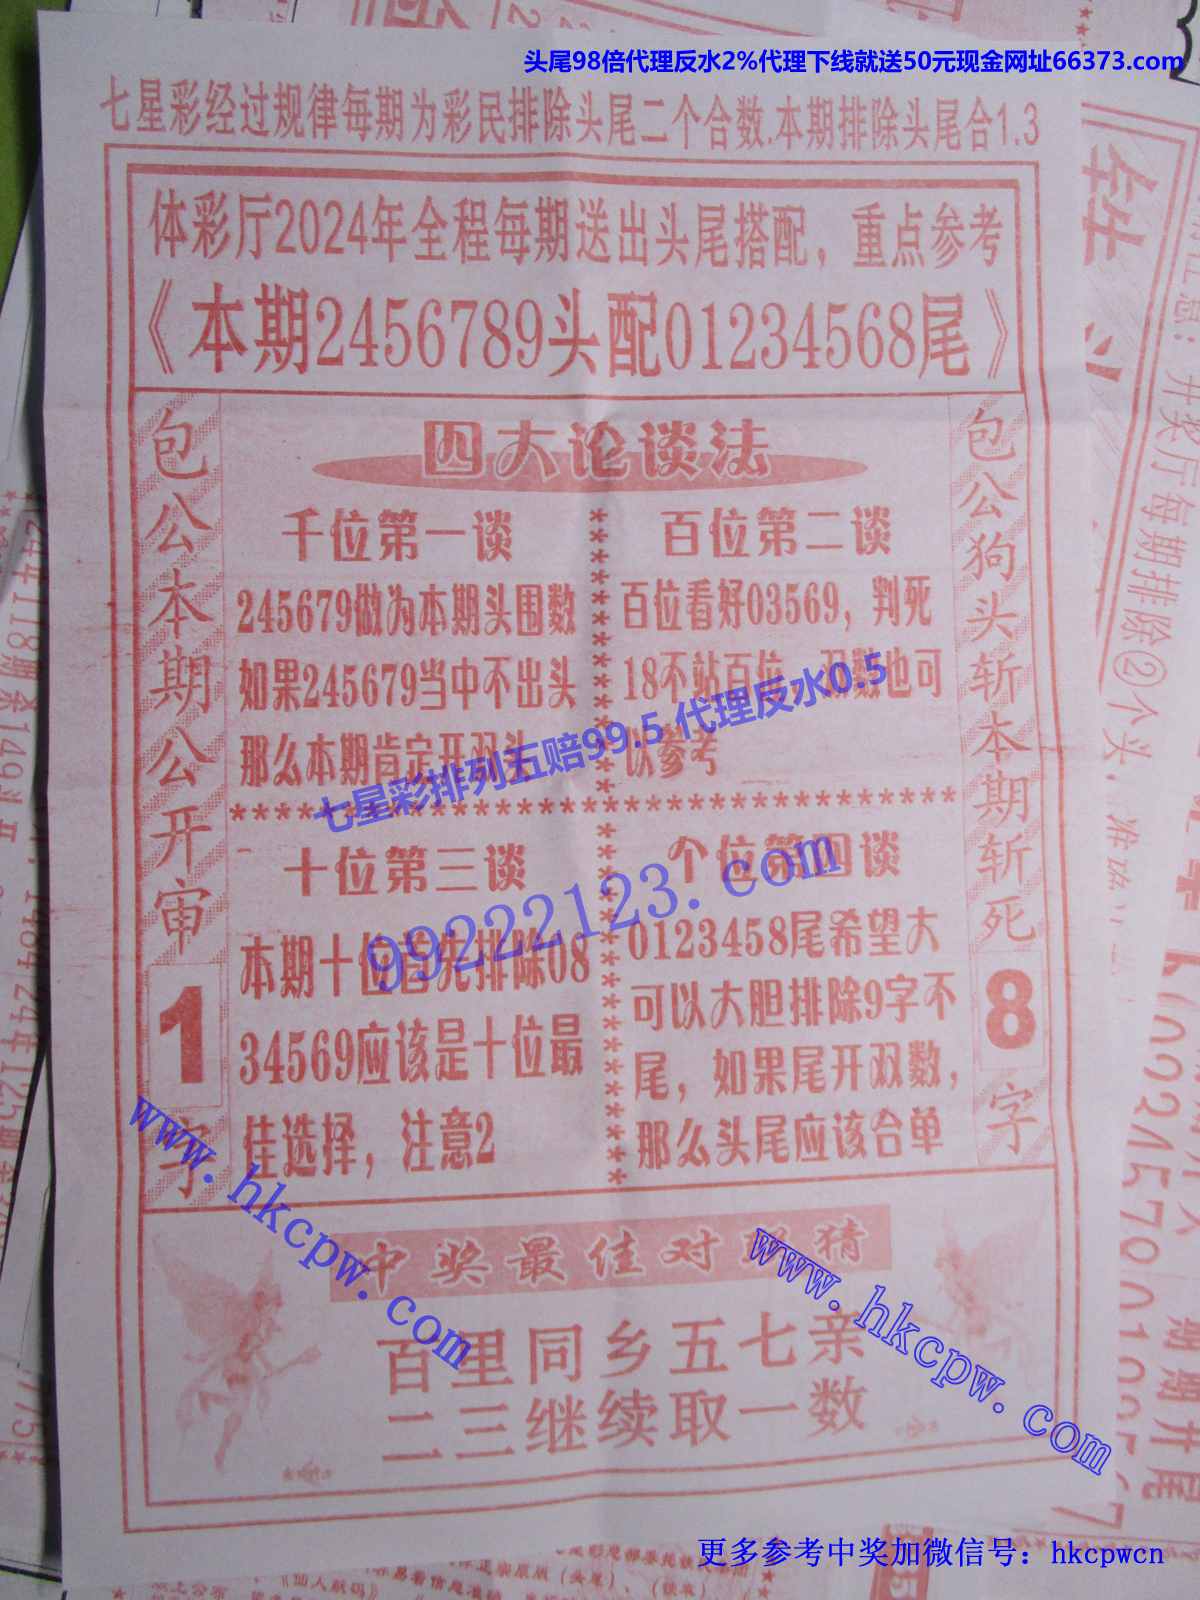 头尾98倍代理反水2%代理下线就送50元现金网址66373.com
七星彩经过规律每期为彩民排除头尾二个合数.本期排除头尾合1.3
体彩厅2024年全程每期送出头尾搭配，重点参考
《本期2456789头配01234568尾》
包公本期公开审1字
四大论谈法
千位第一谈
245679做为本期头围数
如果245679当中不出头
那么本期肯定开双头
百位第二谈
百位看好03569，判死
18不站百位，双数也可
以参考
七星彩排列五赔99.5 代理反水0.5
99222123.com
十位第三谈
本期十位首先排除08
34569应该是十位最
佳选择，注意2
个位第四谈
0123458尾希望大
可以大胆排除9字不
尾，如果尾开双数，
那么头尾应该合单
包公狗头斩本期斩死8字
www.hkcpw.com
www.hkcpw.com
中奖最佳对 猜
百里同乡五七亲
二三继续取一数
更多参考中奖加微信号：hkcpwcn
开奖厅每期排除②个头.